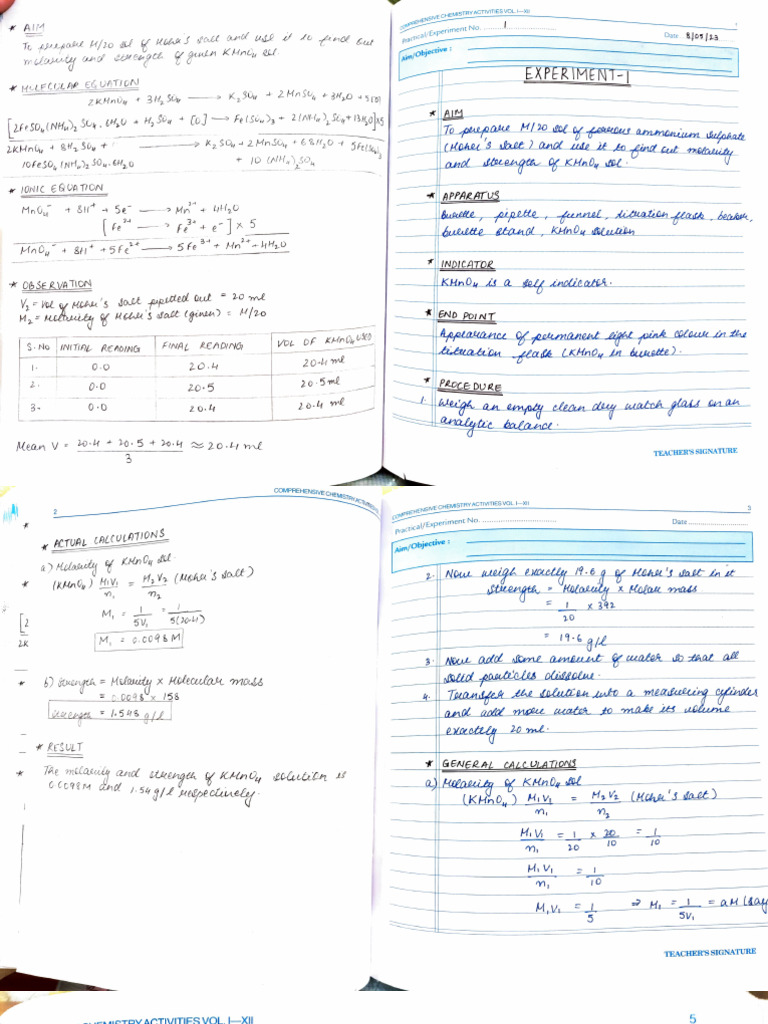 * AIM
To prepare M/20 sol of Moher's salt and use it to find out
molarity and strength of given KMnO4 sol.
* MOLECULAR EQUATION
2KMnO4 + 3H2SO4 → K2SO4 + 2MnSO4 + 3H2O + 5[O]
[2FeSO4(NH4)2SO4.6H2O + H2SO4 + [O] → Fe2(SO4)3 + 2(NH4)2SO4 + 13H2O] x5
2KMnO4 + 8H2SO4 + → K2SO4 + 2MnSO4 + 68H2O + 5Fe2(SO4)3
10FeSO4(NH4)2SO4.6H2O + 10(NH4)2SO4
* IONIC EQUATION
MnO4⁻ + 8H⁺ + 5e⁻ → Mn²⁺ + 4H2O
[Fe²⁺ → Fe³⁺ + e⁻] x 5
MnO4⁻ + 8H⁺ + 5Fe²⁺ → 5Fe³⁺ + Mn²⁺ + 4H2O
* OBSERVATION
V2 = Vol of Moher's salt pipetted out = 20 ml
M2 = Molarity of Moher's salt (given) = M/20
S.No INITIAL READING FINAL READING VOL OF KMnO4 USED
1. 0.0 20.4 20.4 ml
2. 0.0 20.5 20.5 ml
3. 0.0 20.4 20.4 ml
Mean V = 20.4 + 20.5 + 20.4 / 3 ≈ 20.4 ml
COMPREHENSIVE CHEMISTRY ACTIVITIES VOL. I—XII 1
Practical/Experiment No. 1 Date 8/05/23
Aim/Objective :
EXPERIMENT-1
* AIM
To prepare M/20 sol of ferrous ammonium sulphate
(Moher's salt) and use it to find out molarity
and strength of KMnO4 sol.
* APPARATUS
Burette, pipette, funnel, titration flask, beaker,
burette stand, KMnO4 solution
* INDICATOR
KMnO4 is a self indicator.
* END POINT
Appearance of permanent light pink colour in the
titration flask (KMnO4 in burette).
* PROCEDURE
1. Weigh an empty clean dry watch glass on an
analytic balance.
TEACHER'S SIGNATURE
2 COMPREHENSIVE CHEMISTRY ACTIVITIES
* ACTUAL CALCULATIONS
a) Molarity of KMnO4 sol.
(KMnO4) M1V1/n1 = M2V2/n2 (Moher's salt)
M1 = 1/5V1 = 1/5(20.4)
M1 = 0.0098 M
b) Strength = Molarity x Molecular mass
= 0.0098 x 158
Strength = 1.548 g/l
* RESULT
* The molarity and strength of KMnO4 solution is
0.0098M and 1.54 g/l respectively.
COMPREHENSIVE CHEMISTRY ACTIVITIES VOL. I—XII 3
Practical/Experiment No. Date
Aim/Objective :
2. Now weigh exactly 19.6 g of Moher's salt in it
Strength = Molarity x Molar mass
= 1/20 x 392
= 19.6 g/l
3. Now add some amount of water so that all
solid particles dissolve.
4. Transfer the solution into a measuring cylinder
and add more water to make its volume
exactly 20 ml.
* GENERAL CALCULATIONS
a) Molarity of KMnO4 sol
(KMnO4) M1V1/n1 = M2V2/n2 (Moher's salt)
M1V1/n1 = 1/20 x 20/10 = 1/10
M1V1/n1 = 1/10
M1V1 = 1/5 ⇒ M1 = 1/5V1 = aM (say
TEACHER'S SIGNATURE
CHEMISTRY ACTIVITIES VOL. I—XII 5